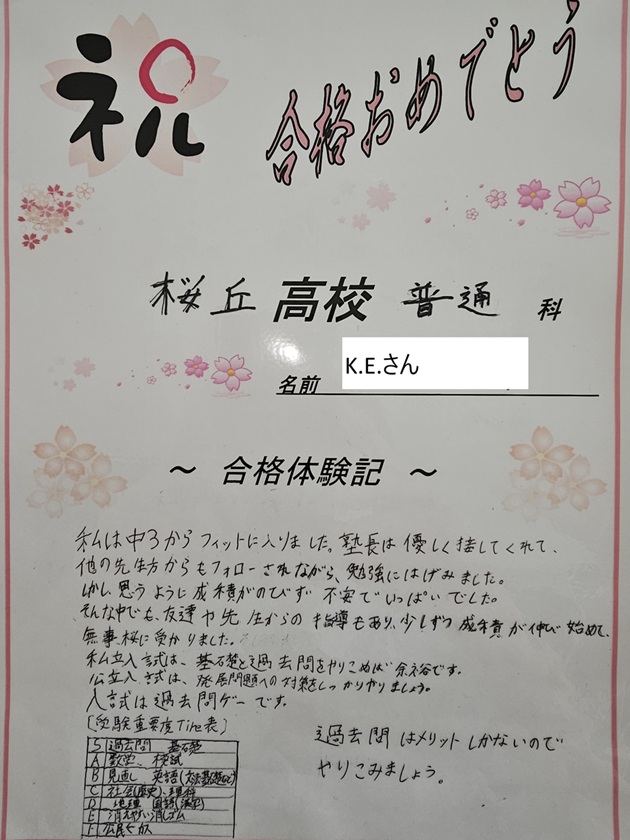 祝
合格おめでとう
桜丘 高校 普通 科
名前 K.E.さん
～ 合格体験記 ～
私は中3からフィットに入りました。塾長は優しく接してくれて、
他の先生方からもフォローされながら、勉強にはげみました。
しかし思うように成績がのびず 不安でいっぱいでした。
そんな中でも、友達や先生からの指導もあり、少しずつ成績が伸び始めて、
無事桜に受かりました。
私立入試は、基礎と過去問をやりこめば余裕です。
公立入試は、発展問題への対策をしっかりやりましょう。
入試は過去問ゲーです。
[受験重要度Tier表]
S 過去問 基礎
A 数学、模試
B 見直し 英語(文法基礎など)
C 社会(歴史)、理科
D 地理 国語(漢字)
E 消えやすい消しゴム
F 公民
過去問はメリットしかないので
やりこみましょう。